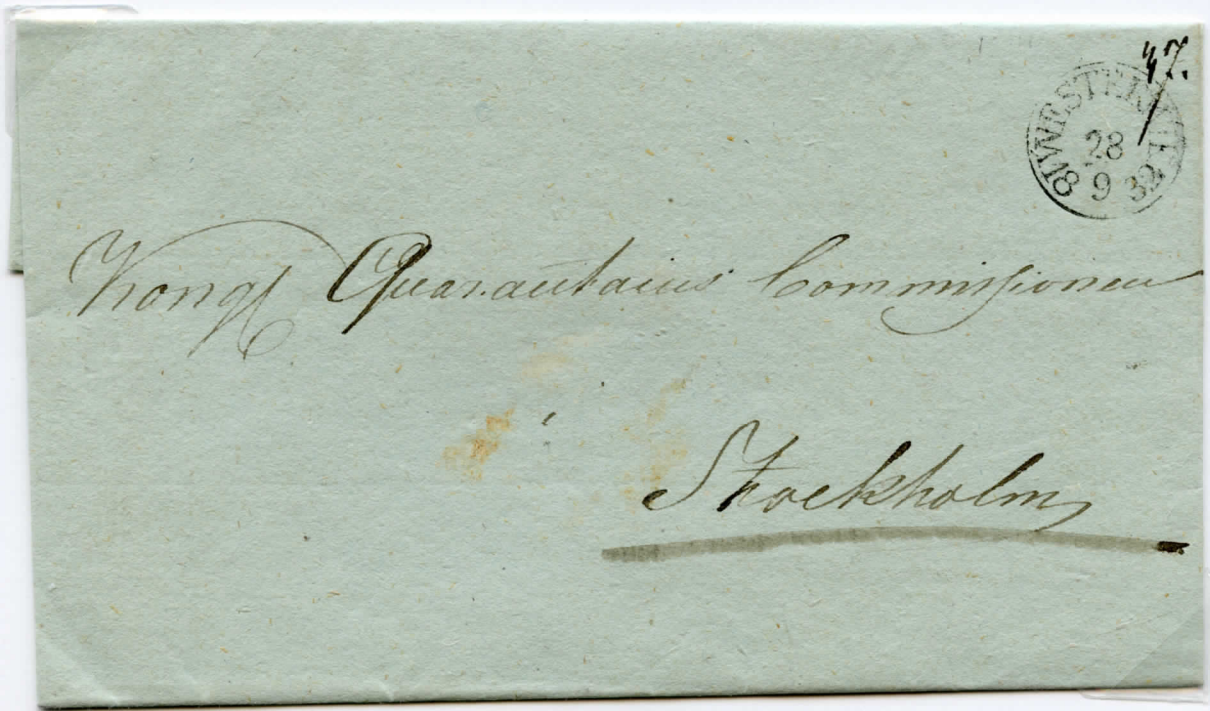 47.
WESTERWIK
28
9 1832
Kongl Quarantains Commissionen
Stockholm